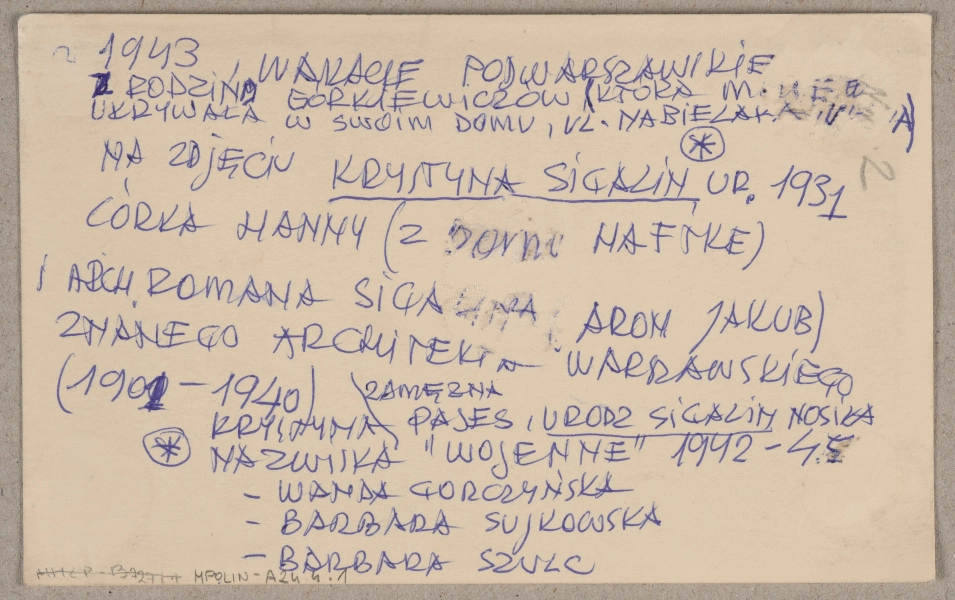 1943, WAKACJE PODWARSZAWSKIE
Z RODZINĄ GÓRKIEWICZÓW (KTÓRA M.
UKRYWAŁA W SWOIM DOMU, UL. NABIELAKA
NA ZDJĘCIU KRYSTYNA SIGALIN UR. 1931
2
CÓRKA HANNY (Z DOMU NAFTKE)
I ARCH. ROMANA SIGALINA ARON JAKUB)
ZNANEGO ARCHITEKTA WARSZAWSKIEGO
(1901 – 1940) ZAMĘŻNA
KRYSTYNA PAJES, URODZ SIGALIN NOSIŁA
* NAZWISKA "WOJENNE" 1942 – 45
– WANDA GORCZYŃSKA
– BARBARA SUJKOWSKA
– BARBARA SZULC
MPOLIN-A24.4.1